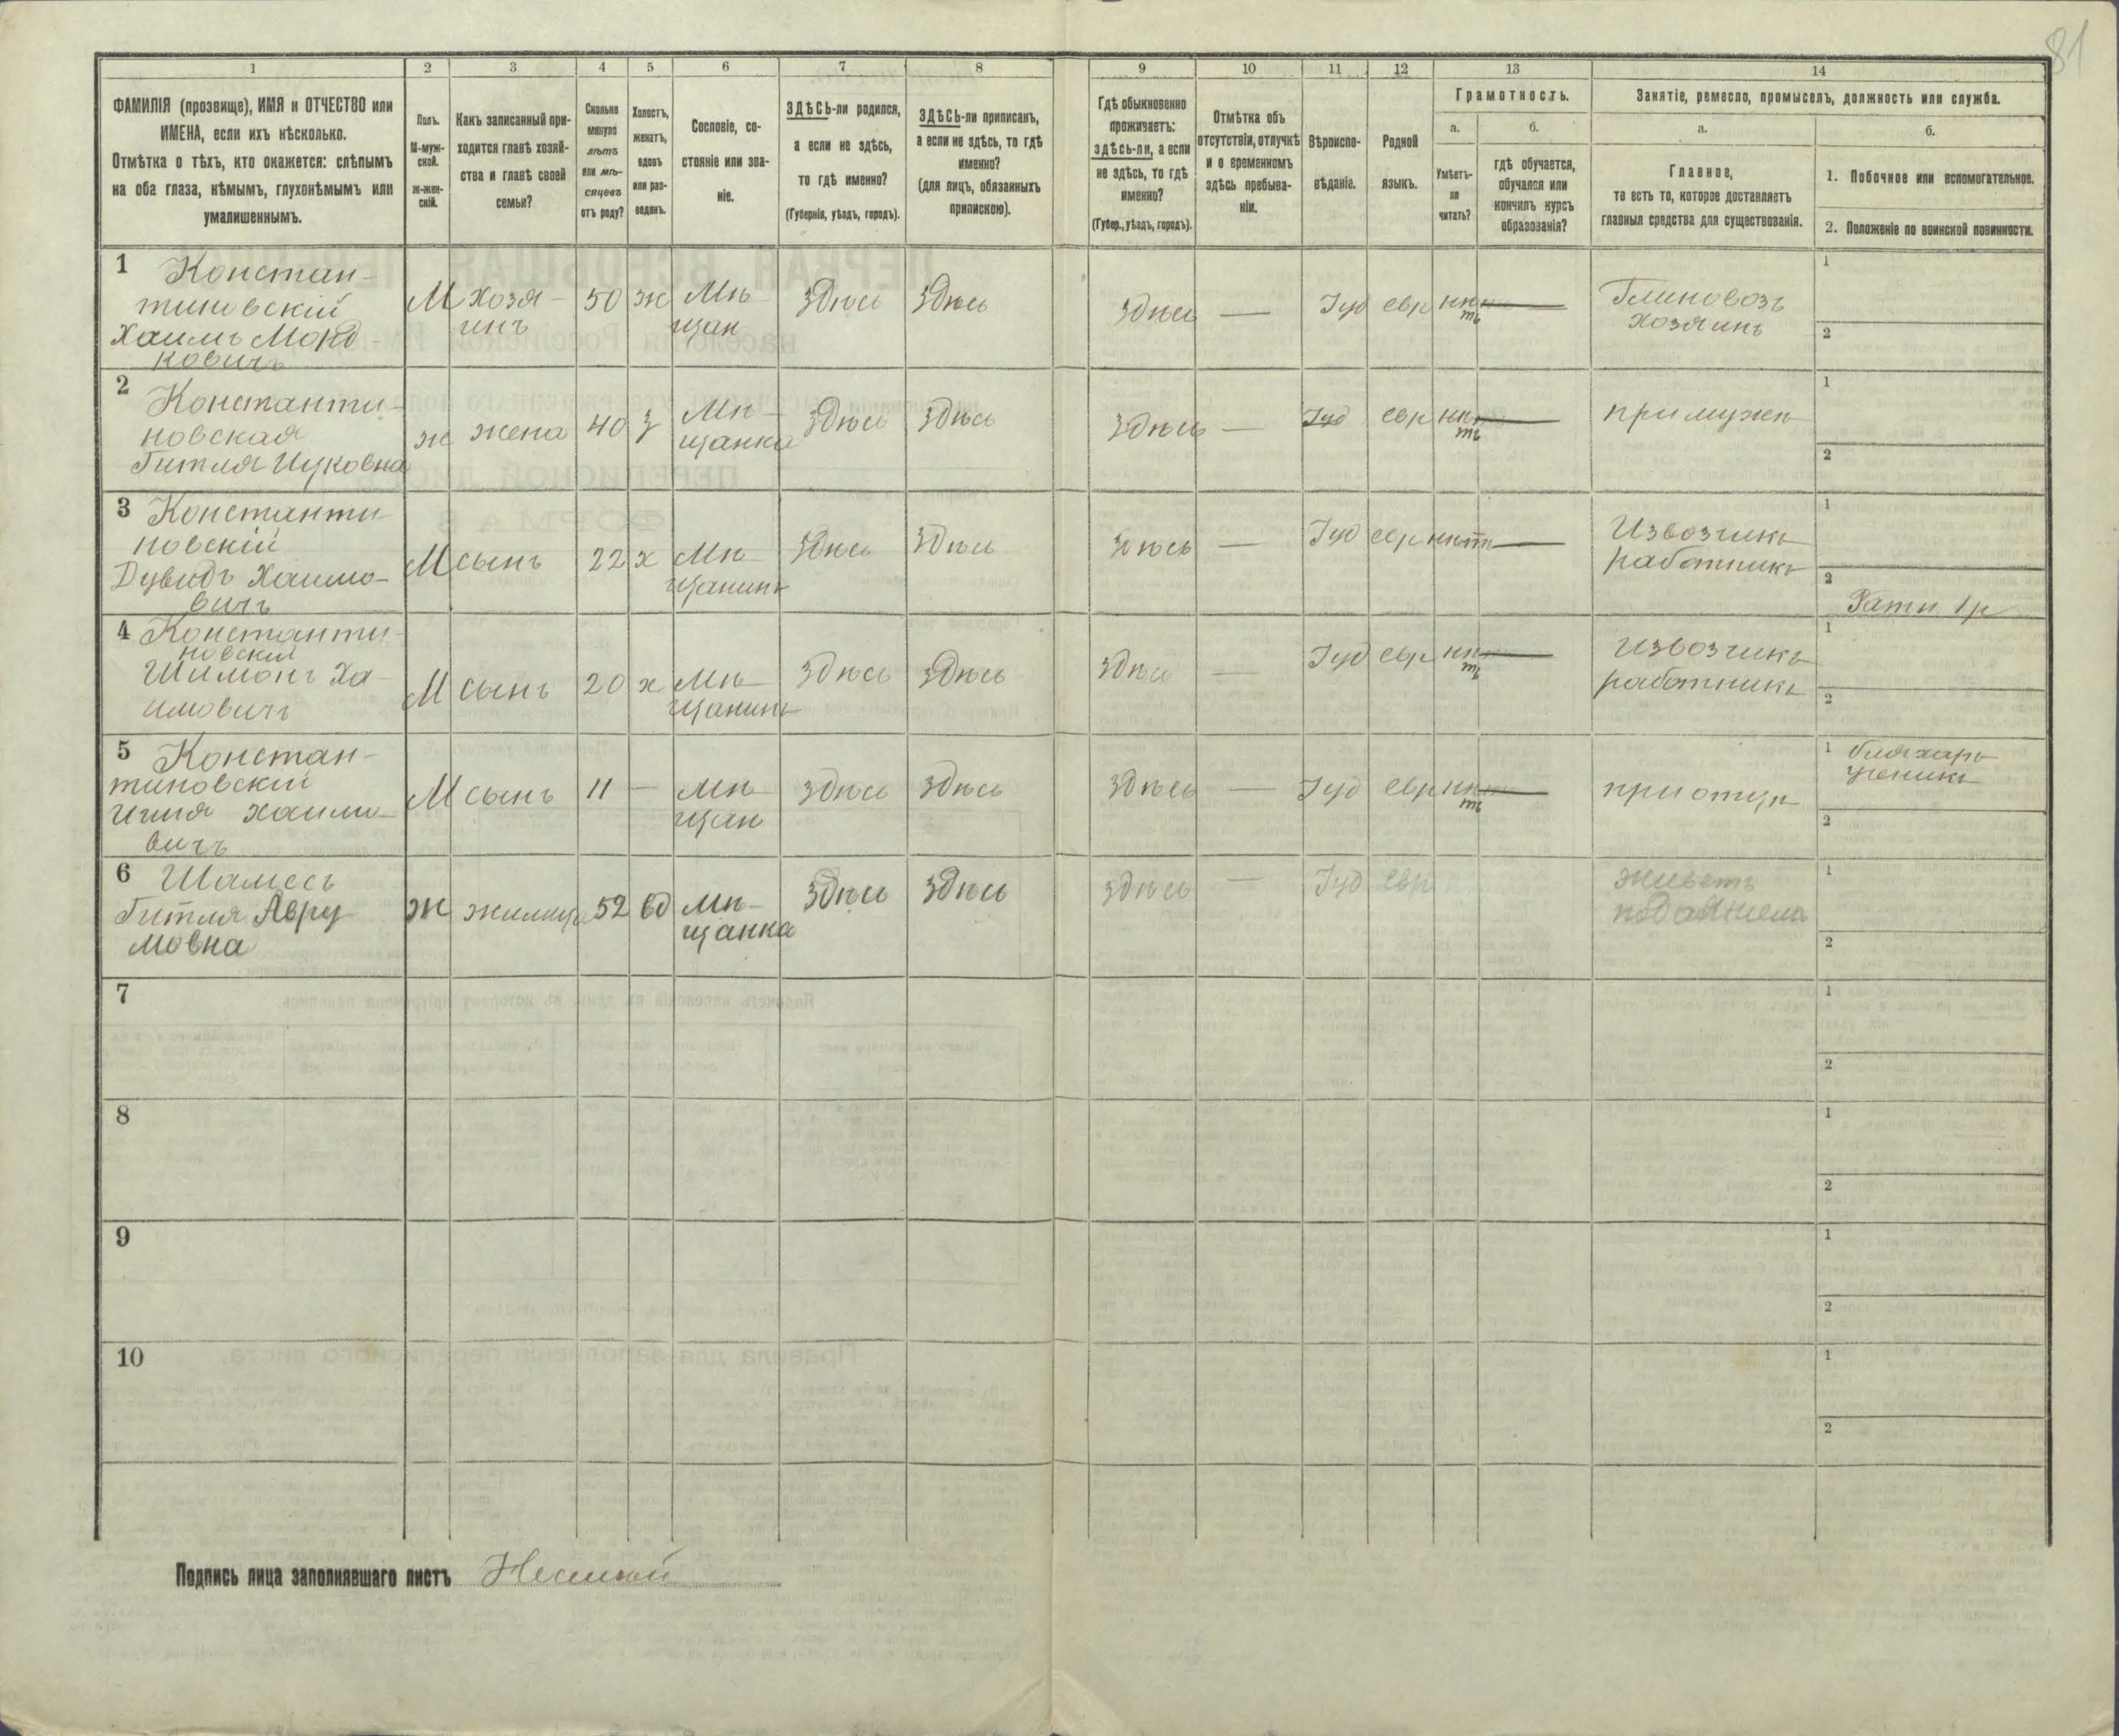 81
1 2 3 4 5 6 7 8 9 10 11 12 13 14
ФАМИЛІЯ (прозвище), ИМЯ и ОТЧЕСТВО или
ИМЕНА, если ихъ нѣсколько.
Отмѣтка о тѣхъ, кто окажется: слѣпымъ
на оба глаза, нѣмымъ, глухонѣмымъ или
умалишеннымъ.
Полъ.
М-муж-
ской.
Ж-жен-
скій.
Какъ записанный при-
ходится главѣ хозяй-
ства и главѣ своей
семьи?
Сколько
минуло
лѣтъ
или мѣ-
сяцевъ
отъ роду?
Холостъ,
женатъ,
вдовъ
или раз-
веденъ.
Сословіе, со-
стояніе или зва-
ніе.
ЗДѢСЬ-ли родился,
а если не здѣсь,
то гдѣ именно?
(Губернія, уѣздъ, городъ).
ЗДѢСЬ-ли приписанъ,
а если не здѣсь, то гдѣ
именно?
(для лицъ, обязанныхъ
припискою).
Гдѣ обыкновенно
проживаетъ:
здѣсь-ли, а если
не здѣсь, то гдѣ
именно?
(Губер., уѣздъ, городъ).
Отмѣтка объ
отсутствіи, отлучкѣ
и о временномъ
здѣсь пребыва-
ніи.
Вѣроиспо-
вѣданіе.
Родной
языкъ.
Грамотность.
а.
Умѣетъ-
ли
читать?
б.
гдѣ обучается,
обучался или
кончилъ курсъ
образованія?
Занятіе, ремесло, промыселъ, должность или служба.
а.
Главное,
то есть то, которое доставляетъ
главныя средства для существованія.
б.
1. Побочное или вспомогательное.
2. Положеніе по воинской повинности.
1 Констан-
тиновскій
Хаимъ Морд-
ковичъ
М
хозя-
инъ
50
ж
Мѣ-
щан
здѣсь
здѣсь
здѣсь
—
Іуд
евр
нѣ
тъ
Глиновозъ
хозяинъ
1
2
2 Константи-
новская
Гитля Ицковна
ж
жена
40
з
Мѣ-
щанка
здѣсь
здѣсь
здѣсь
—
Іуд
евр
нѣ
тъ
при мужѣ
1
2
3 Константи-
новскій
Дувидъ Хаимо-
вичъ
М
сынъ
22
х
Мѣ-
щанинъ
здѣсь
здѣсь
здѣсь
—
Іуд
евр
нѣтъ
Извозчикъ
работникъ
1
2
Ратн. 1 р
4 Константи-
новскій
Шимонъ Ха-
имовичъ
М
сынъ
20
х
Мѣ-
щанинъ
здѣсь
здѣсь
здѣсь
—
Іуд
евр
нѣ
тъ
извозчикъ
работникъ
1
2
5 Констан-
тиновскій
Хаимо-
вичъ
М
сынъ
11
—
Мѣ-
щан
здѣсь
здѣсь
здѣсь
—
Іуд
евр
нѣ
тъ
при отцѣ
1 бляхарь
ученикъ
2
6 Шамесъ
Гитля Авру
мовна
Ж
жилица
52
вд
Мѣ-
щанка
здѣсь
здѣсь
здѣсь
—
Іуд
евр
живетъ
подаянiемъ
1
2
7
1
2
8
1
2
9
1
2
10
1
2
Подпись лица заполнявшаго листъ